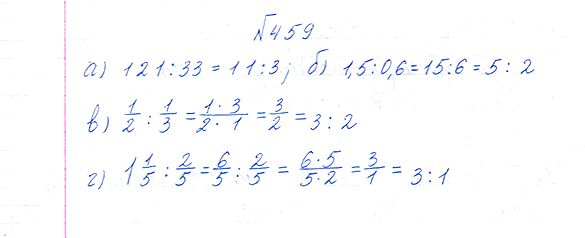 №459
а) 121:33=11:3; б) 1,5:0,6=15:6=5:2
в) 1/2 : 1/3 = 1·3/2·1 = 3/2 = 3:2
г) 1 1/5 : 2/5 = 6/5 : 2/5 = 6·5/5·2 = 3/1 = 3:1